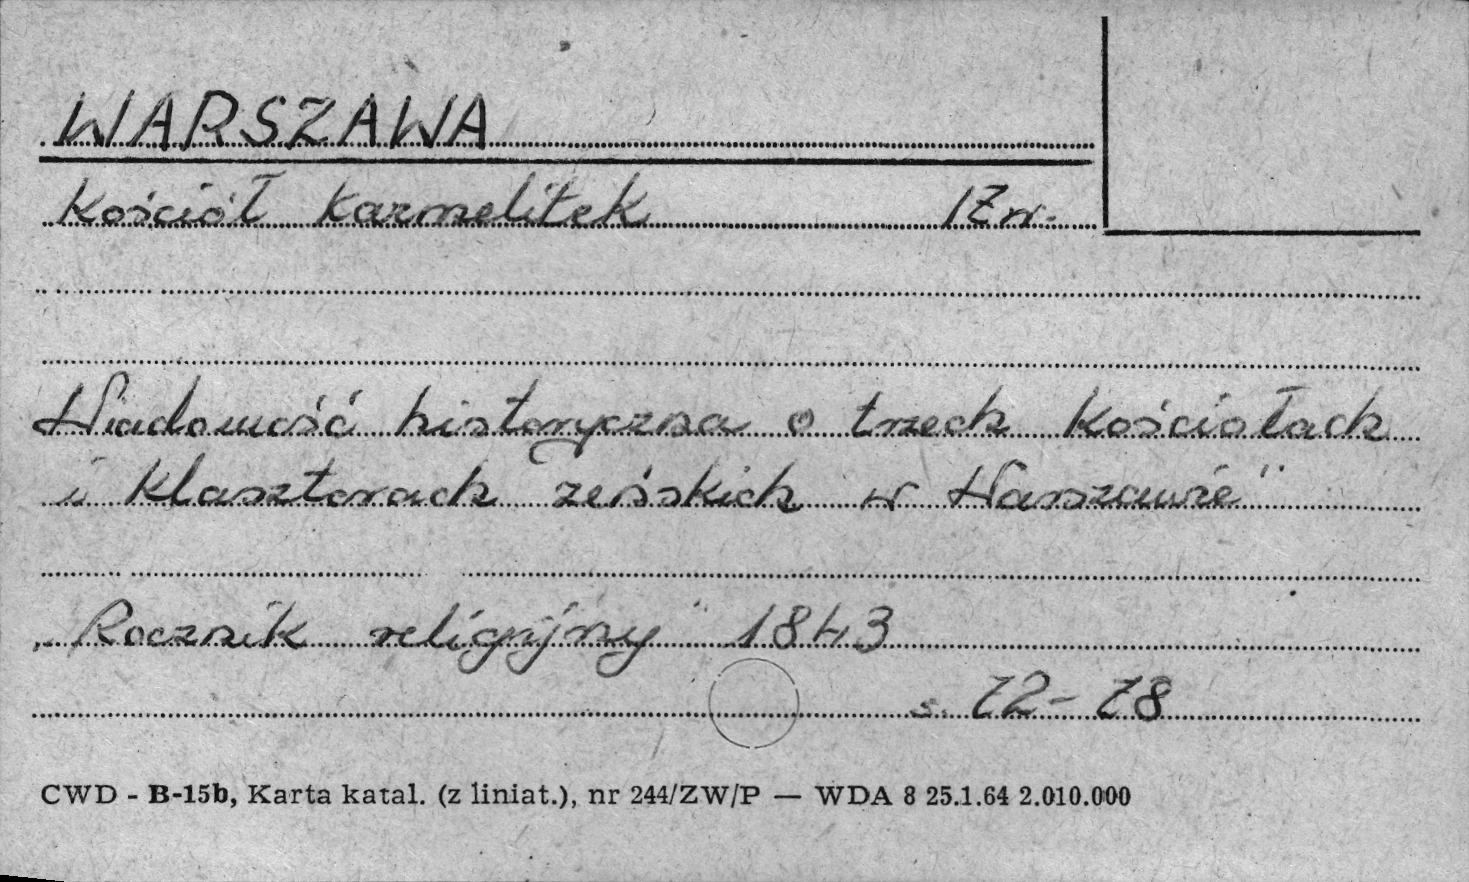 WARSZAWA
Kościół Karmelitek
Wiadomość historyczna o trzech Kościołach
i Klasztorach żeńskich w Warszawie"
„Rocznik religijny" 1843
s. 72-78
CWD - B-15b, Karta katal. (z liniat.), nr 244/ZW/P — WDA 8 25.1.64 2.010.000